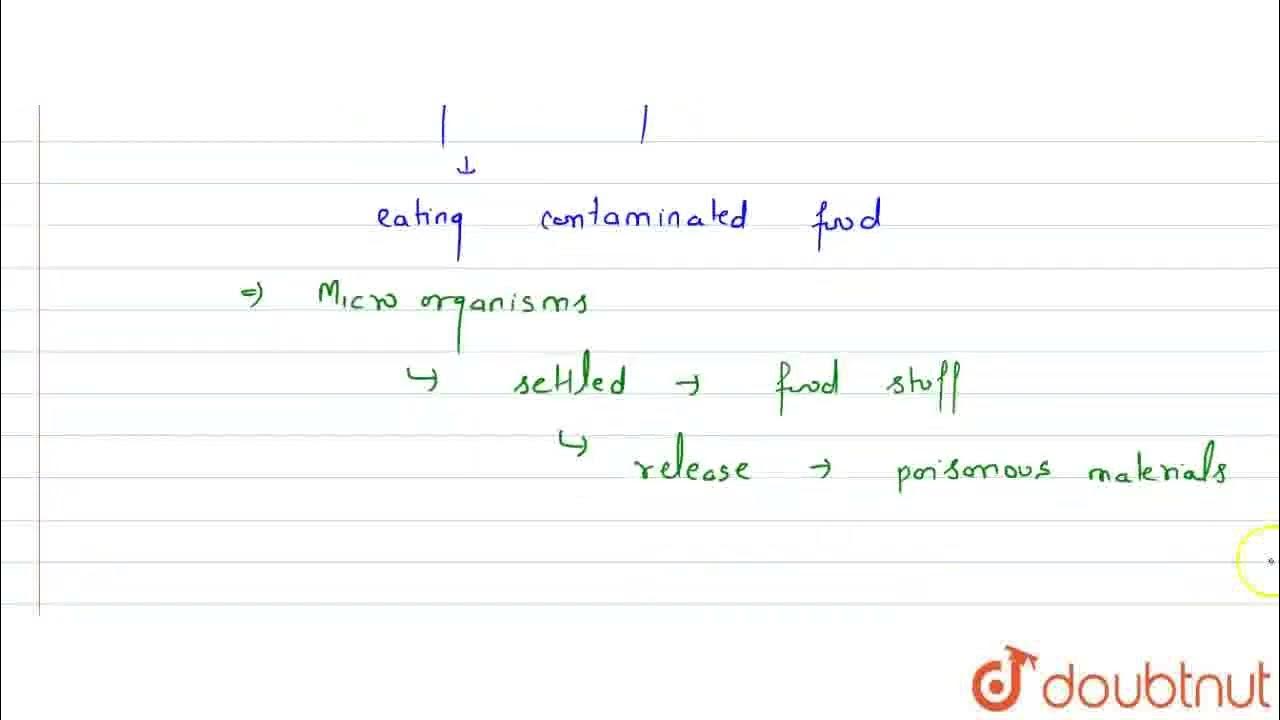 ↓
eating contaminated food
⇒ Micro organisms
↳ settled → food stuff
↳ release → poisonous materials
doubtnut